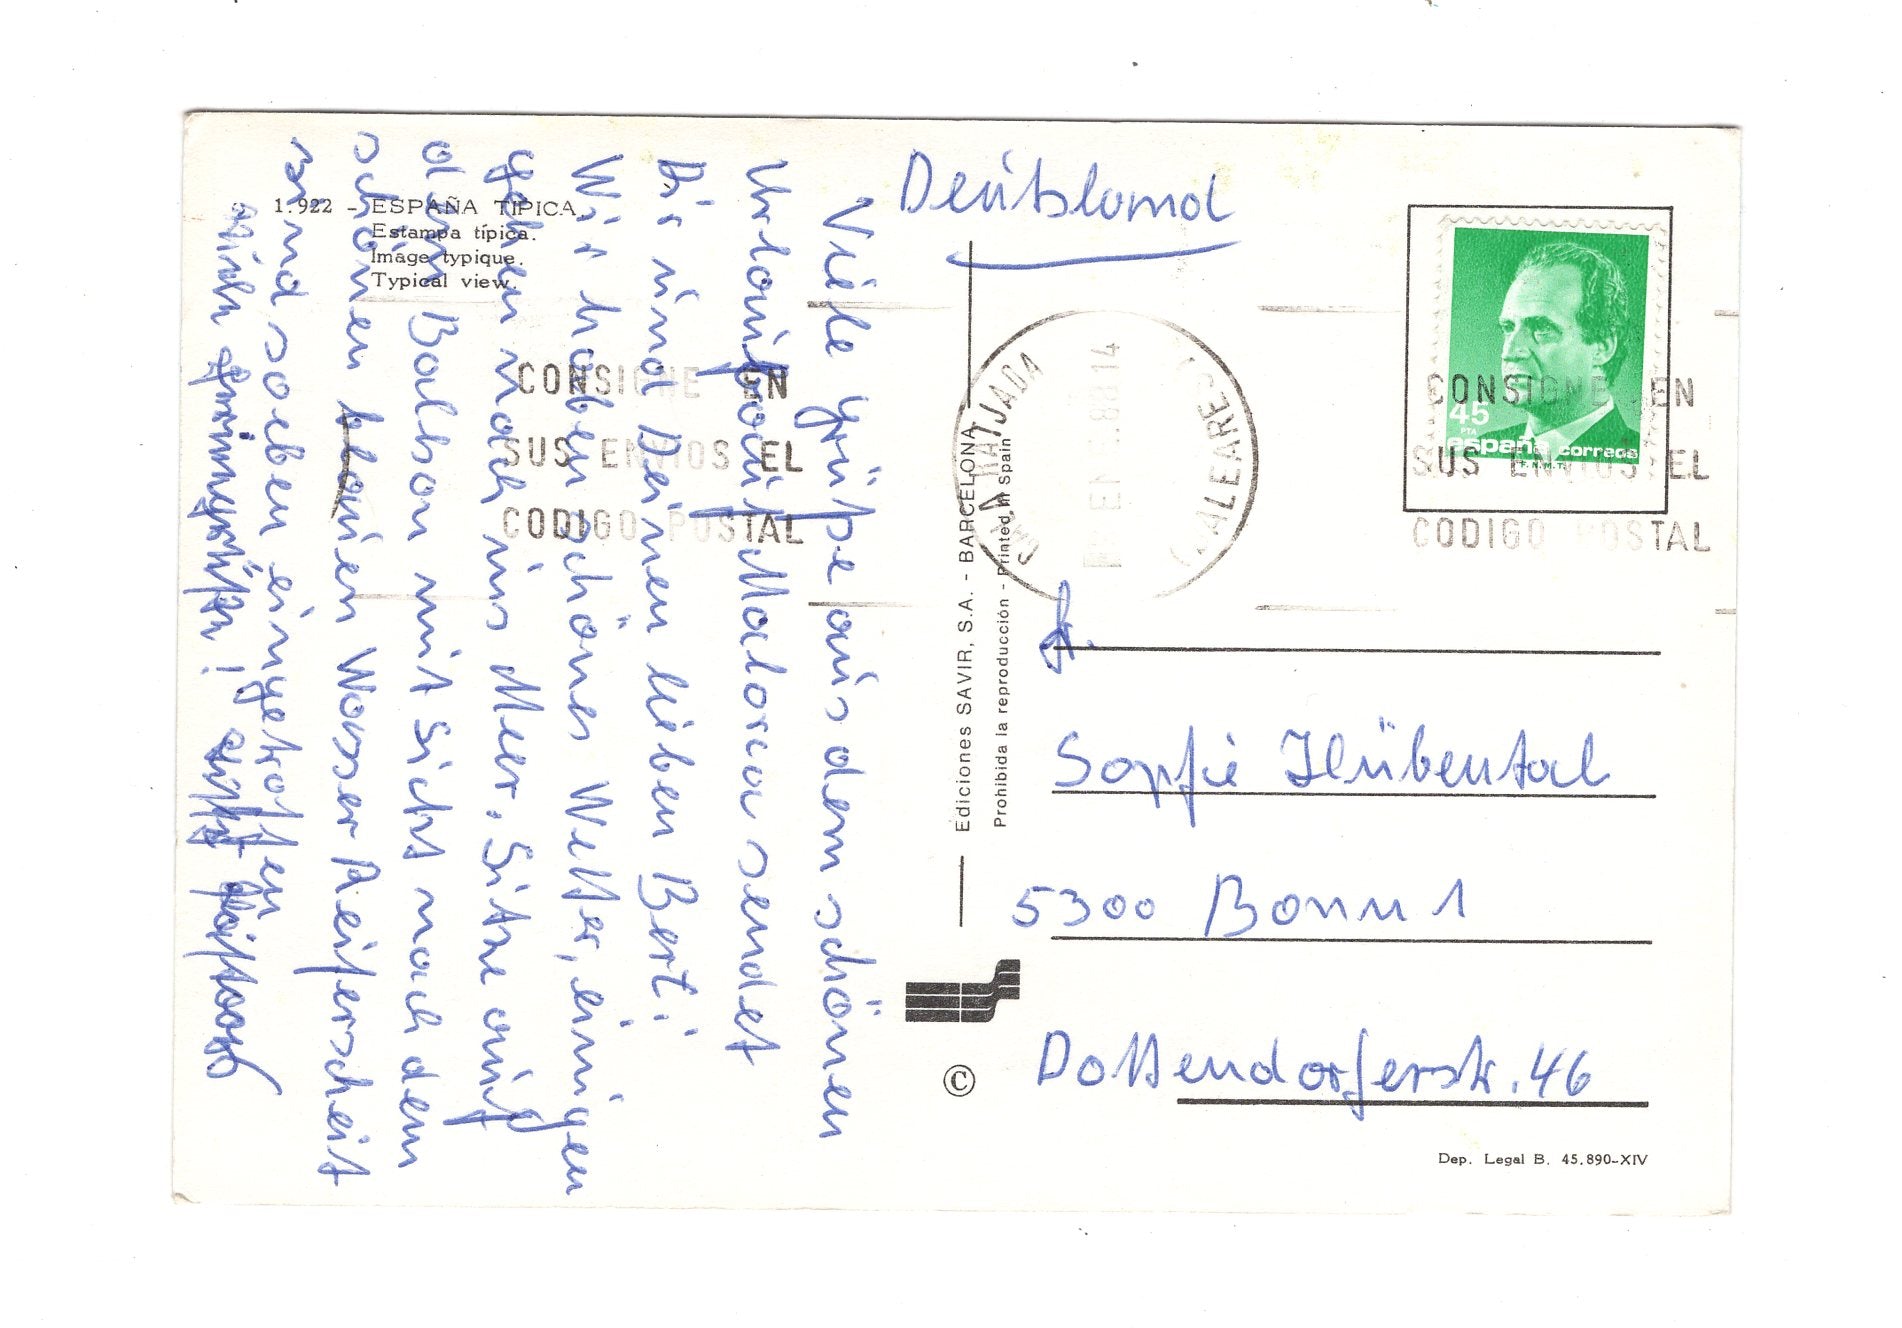 1.922 - ESPAÑA TIPICA.
Estampa típica.
Image typique.
Typical view.
Viele grüße aus dem schönen
Urlaub auf Malorca sendet
Dir und Deinen lieben Berti
Wir haben schönes Wetter, einigen
gehen noch ins Meer. Sitze auf
dem Balkon mit Sicht nach dem
schönen blauen Wasser
sind soeben eingetroffen
Deutsland
CONSIGNE EN
SUS ENVIOS EL
CODIGO POSTAL
(BALEARES)
88 14
CONSIGNE EN
SUS ENVIOS EL
CODIGO POSTAL
45
PTA
españa correos
F.N.M.T.
Ediciones SAVIR, S.A. - BARCELONA
Prohibida la reproducción - Printed in Spain
Fr.
Sopfie Hübental
5300 Bonn 1
Dottendorferstr. 46
©
Dep. Legal B. 45.890-XIV